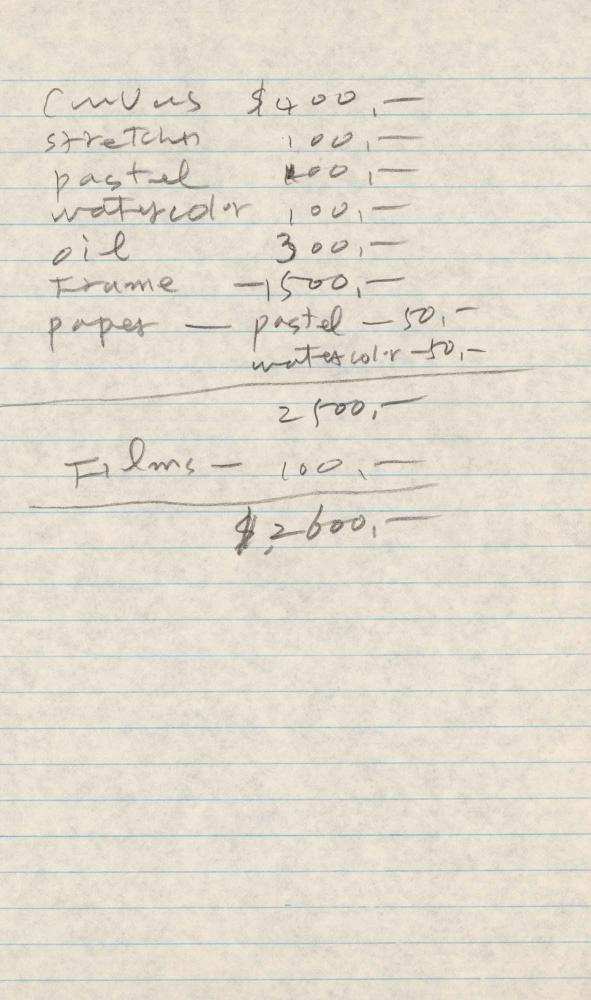 Canvas $400,—
stretchn 100,—
pastel 100,—
watercolor 100,—
oil 300,—
Frame —1500,—
paper — pastel — 50,—
watercolor —50,—
2500,—
Films — 100,—
$2600,—